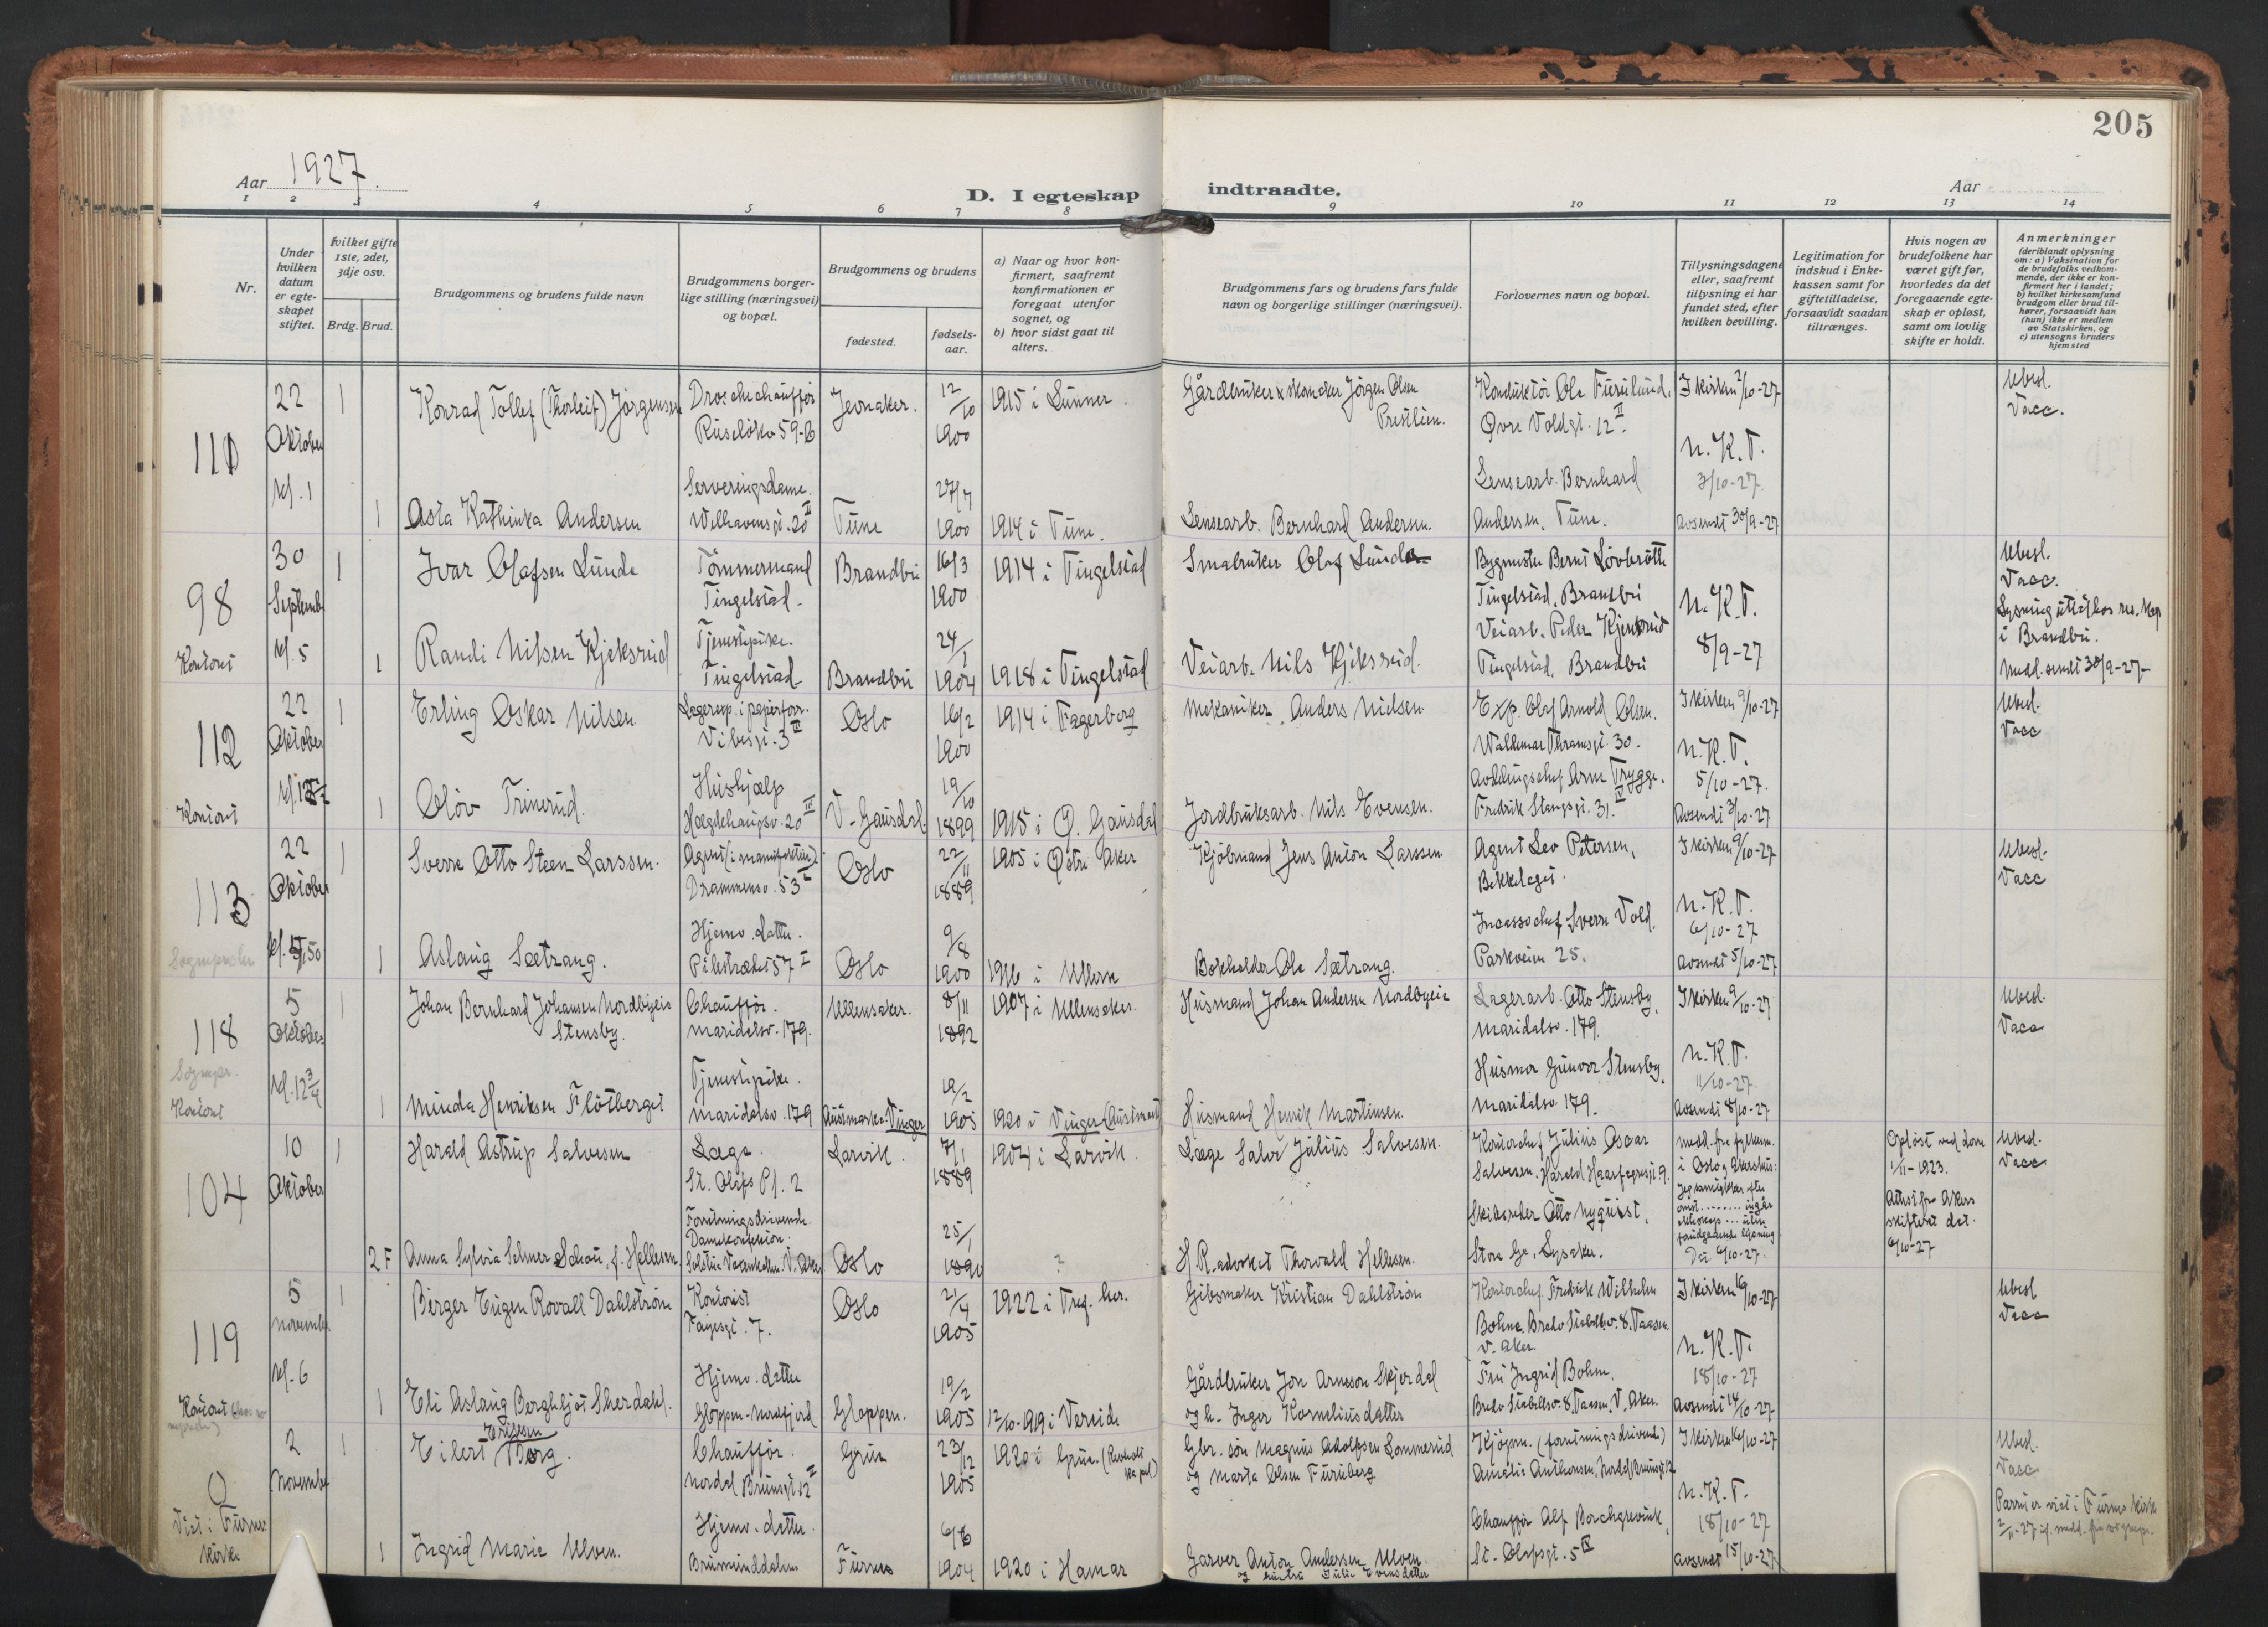 205
Aar 1927.
D. I egteskap indtraadte.
Aar
1 2 3 4 5 6 7 8 9 10 11 12 13 14
Nr.
Under hvilken datum er egteskapet stiftet.
Hvilket gifte 1ste, 2det, 3dje osv.
Brdg. Brud.
Brudgommens og brudens fulde navn
Brudgommens borgerlige stilling (næringsvei) og bopæl.
Brudgommens og brudens
fødested.
fødselsaar.
a) Naar og hvor konfirmert, saafremt konfirmationen er foregaat utenfor sognet, og
b) hvor sidst gaat til alters.
Brudgommens fars og brudens fars fulde navn og borgerlige stillinger (næringsvei).
Forlovernes navn og bopæl.
Tillysningsdagene eller, saafremt tillysning ei har fundet sted, efter hvilken bevilling.
Legitimation for indskud i Enkekassen samt for giftetilladelse, forsaavidt saadan tiltrænges.
Hvis nogen av brudefolkene har været gift før, hvorledes da det foregaaende egteskap er opløst, samt om lovlig skifte er holdt.
Anmerkninger (deriblandt oplysning om: a) Vaksination for de brudefolks vedkommende, der ikke er konfirmert her i landet; b) hvilket kirkesamfund brudgom eller brud tilhører, forsaavidt han (hun) ikke er medlem av Statskirken, og c) utensogns bruders hjemsted
110
22 Oktober kl. 1
1 Konrad Tollef (Thorleif) Jørgensen
Droschechauffør
Jevnaker.
12/10 1900
1915 i Lunner.
Gårdbruker & skomaker Jörgen Olsen
Konduktör Ole Furulund,
Øvre Voldgt. 12 II
I kirken 2/10-27
N.K.T.
3/10-27.
Ubesl.
Vacc.
1 Asta Kathinka Andersen
Serveringsdame.
Welhavensgt. 20 II
Tune
27/7 1900
1914 i Tune.
Lensearb. Bernhard Andersen.
Lensearb. Bernhard
Andersen, Tune.
Avsendt 30/9-27
98
Kontoret
30 Septemb. kl. 5
1 Ivar Olafsen Lunde
Tömmermand
Tingelstad.
Brandbu
16/3 1900
1914 i Tingelstad
Smabruker Olaf Lunde
Tingelstad, Brandbu
N.K.T.
8/9-27
Ubesl.
Vacc.
i Brandbu.
Medd. sendt 30/9-27-
1 Randi Nilsen Kjeksrud
Tjenestepike.
Tingelstad
Brandbu
24/1 1904
1918 i Tingelstad
Veiarb. Nils Kjeksrud.
Veiarb. Peder Kjeksrud
Tingelstad, Brandbu
112
Kontoret
22 Oktober
1 Erling Oskar Nilsen
Lagerexp. i papirforr.
Vibesgt. 3 II
Oslo
16/2 1900
1914 i Fagerberg
Mekaniker Anders Nielsen.
Exp. Olaf Arnold Olsen.
Waldemar Thranesgt. 30.
I kirken 9/10-27
N.K.T.
5/10-27.
Ubesl.
Vacc
1 Olöv Trinerud.
Hushjælp
Hægdehaugsv. 20 III
V. Gausdal.
19/10 1899
1915 i Ø. Gausdal
Jordbruksarb. Nils Evensen.
Avdelingschef Arne Trygge.
Fredrik Stangsgt. 31.
Avsendt 3/10-27
113
22 Oktober
1 Sverre Otto Steen Larssen.
Agent (i manufaktur).
Drammensv. 53 I
Oslo
22/11 1889
1905 i Østre Aker
Kjöbmand Jens Anton Larssen
Agent Leo Petersen,
Bekkelaget.
I kirken 9/10-27
N.K.T.
6/10-27
Ubesl.
Vacc
1 Aslaug Sætrang.
Hjemv. datter.
Pilestrædet 57 I
Oslo
9/8 1900
1916 i Ullern
Bokholder Ole Sætrang.
Incassochef Sverre Vold.
Parkveien 25.
Avsendt 5/10-27
118
Sognepr.
Kontoret
5 Oktober kl. 12 3/4
1 Johan Bernhard Johansen Nordbyeie
Stensby.
Chauffør.
Maridalsv. 179.
Ullensaker.
8/11 1892
1907 i Ullensaker.
Husmand Johan Andersen Nordbyeie
Lagerarb. Otto Stensby,
Maridalsv. 179.
I kirken 9/10-27
N.K.T.
11/10-27.
Ubesl.
Vacc
1 Minda Henriksen Flötberget
Tjenestepike.
Maridalsv. 179
Austmarka. Vinger
19/2 1905
1920 i Vinger (Austmark)
Husmand Henrik Martinsen.
Husmor Gunvor Stensby,
Maridalsv. 179.
Avsendt 8/10-27
104
10 Oktober
1 Harald Astrup Salvesen
Læge.
St. Olafs Pl. 2
Larvik.
7/1 1889
1904 i Larvik.
Læge Salve Julius Salvesen.
Kontorchef Julius Oscar
Salvesen, Harald Haarfagresgt. 9.
Medd. fra fylkesm.
i Oslo og Akershus:
Dat. 6/10-27.
Opløst ved dom
1/11-1923.
Attest fra Akers
skifterett dat.
6/10-27
Ubesl.
Vacc
2 F Anna Sylvia Selmer Schou, f. Hellesen
Forretningsdrivende.
Damekonfeksion.
Oslo
25/1 1890
?
H.R. advokat Thorvald Hellesen.
Skibsreder Otto Nyquist,
Store Ga., Lysaker.
119
Kontoret
5 November kl. 6
1 Birger Eugen Rovall Dahlström
Kontorist
Fagesgt. 7.
Oslo
21/4 1905
1922 i Tref. her.
Gibsmaker Kristian Dahlström
Kontorchef Fredrik Wilhelm
V. Aker.
I kirken 16/10-27
N.K.T.
18/10-27
Ubesl
Vacc
1 Eli Aslaug Bergliot Skerdahl.
Hjemv. datter
Gloppen - Nordfjord
Gloppen.
19/2 1905
12/10-1919 i Vereide
Gårdbruker Jon Arneson Skjerdal
og h. Inger Korneliusdatter
Fru Ingrid Bohne.
Avsendt 14/10-27
0
Viet i Furnes
kirke
2 November
1 Eilert Eriksen Borg.
Chauffør.
Nordal Brunsgt. 12 II
Grue
23/12 1905
1920 i Grue.
Gbr. søn Magnus Adolfsen Sommerud
og Marta Olsen Furuberg
Kjöpm. (forretningsdrivende)
Amalie Anthonsen, Nordal Brunsgt. 12
I kirken 16/10-27
N.K.T.
18/10-27
Ubesl.
Vacc
Parret er viet i Furnes kirke
2/11-27 if. medd. fra sognepr.
1 Ingrid Marie Ulven.
Hjemv. datter.
Brumunddalen
Furnes
6/6 1904
1920 i Hamar
Garver Anton Andersen Ulven.
Chauffør Alf Borchgrevink,
St. Olafsgt. 5 IV
Avsendt 15/10-27